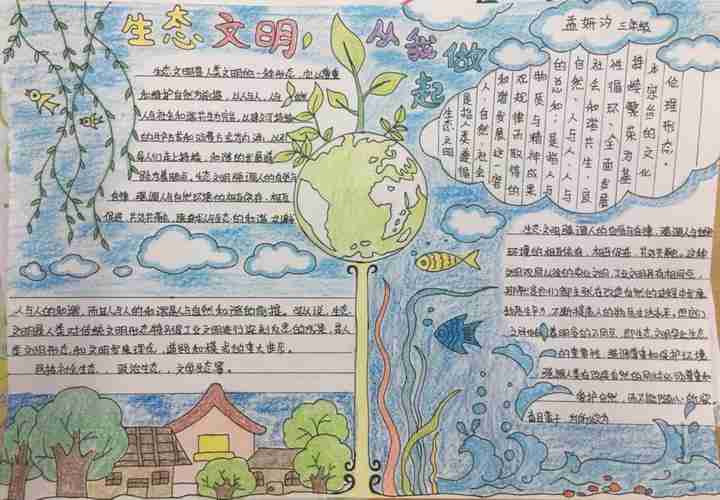 生态文明，从我做起
孟妍汐 三年级
生态文明是人类文明的一种形态，它以尊重
和维护自然为前提，以人与人、人与
人与社会和谐共生为宗旨，以建立可持续
的生产方式和消费方式为内涵，以引
导人们走上持续、和谐的发展道
路为着眼点。生态文明强调人的自觉与
自律，强调人与自然环境的相互依存、相互
促进、共处共融，既追求人与生态的和谐
生态文明
是指人类遵循
人、自然、社会
和谐发展这一客
观规律而取得的
物质与精神成果
的总和；是指人与
自然、人与人、人与
社会和谐共生、良
性循环、全面发展
持续繁荣为基
本宗旨的文化
伦理形态。
人与人的和谐，而且人与人的和谐是人与自然和谐的前提。可以说，生态
文明是人类对传统文明形态特别是工业文明进行深刻反思的成果，是人
类文明形态和文明发展理念、道路和模式的重大进步。
包括社会生态、政治生态、文化生态等。
生态文明强调人的自觉与自律，强调人与自然
环境的相互依存、相互促进、共处共融。这种
文明观同以往的农业文明、工业文明具有相同点，
那就是它们都主张在改造自然的过程中发展
物质生产力，不断提高人的物质生活水平。但它们
之间也有着明显的不同点，即生态文明突出生态
的重要性，强调尊重和保护环境
强调人类在改造自然的同时必须尊重和
爱护自然，而不能随心所欲，
盲目蛮干，为所欲为